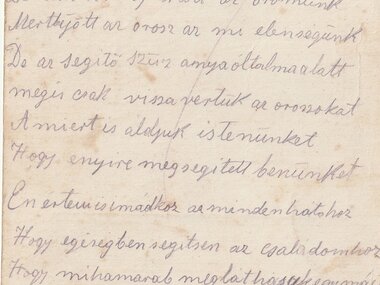 az örömünk
Merthyött az orosz az mi elenségünk
De az segitö szüz anya óltalma alatt
mégis csak vissza vertük az oroszokat
A miert is áldjuk istenünket
Hogy enyire megsegitett benünket
En ertem is imadkoz az mindenhatohoz
Hogy egéségben segitsen az családomhoz
Hogy mihamarab megláthassuk egymás